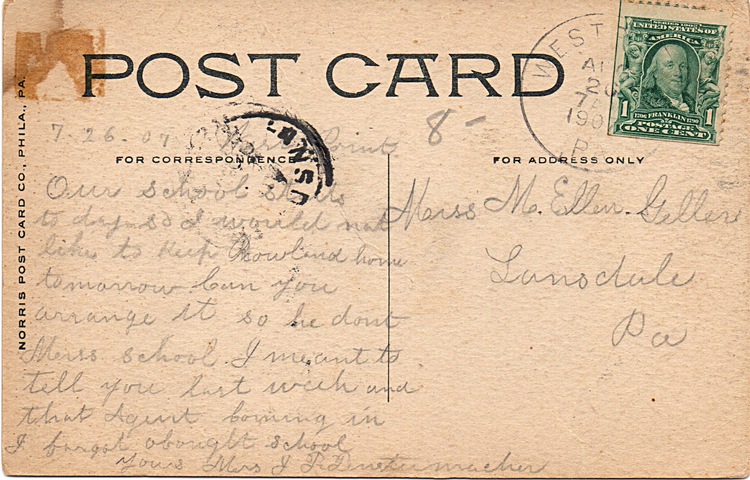 POST CARD
WEST
A
2
7 A
190
P
SERIES 1902
UNITED STATES OF
AMERICA
1 1706 FRANKLIN 1790 1
POSTAGE
ONE CENT
LANSD
7-26-07 Point 8-
FOR CORRESPONDENCE
FOR ADDRESS ONLY
NORRIS POST CARD CO., PHILA., PA.
Our school
to day so I would not
like to keep Rowland home
tomorrow Can you
arrange it so he dont
Miss school I meant to
tell you last week and
that Agent Coming in
I forgot abought school
Yours Mrs J P
Miss M. Ellen Geller
Lansdale
Pa